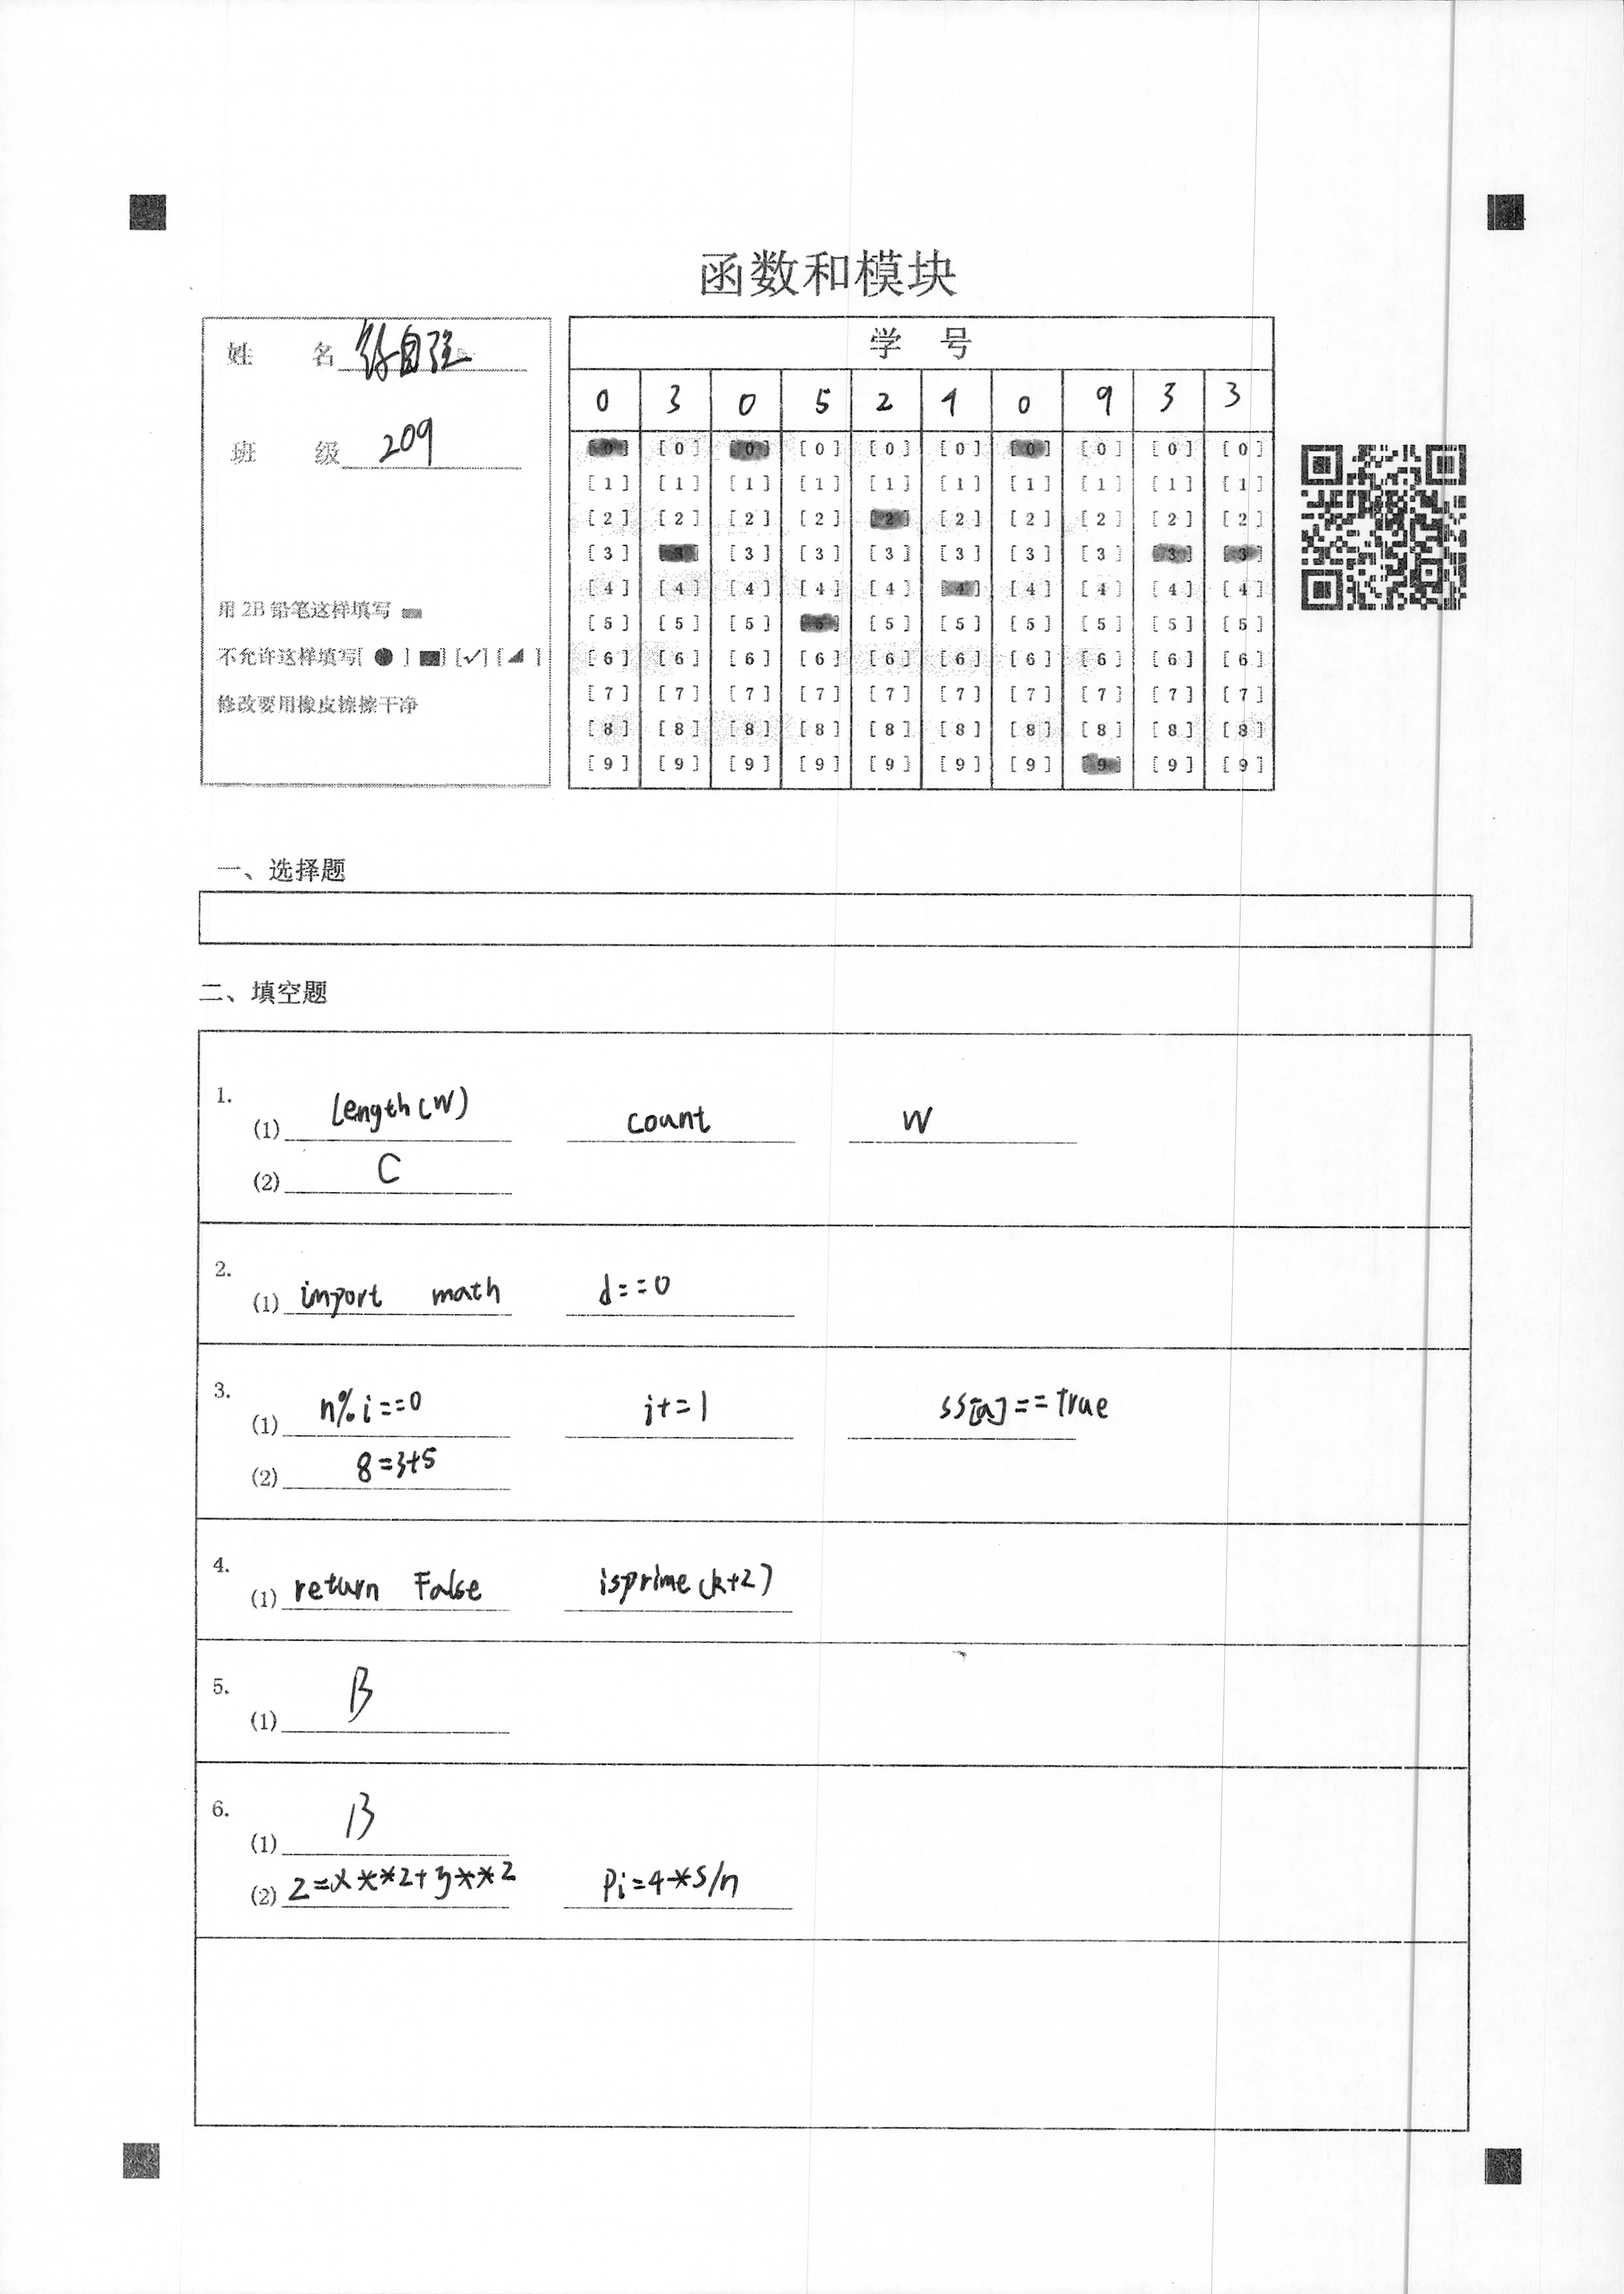 函数和模块
姓 名 自强
班 级 209
用 2B 铅笔这样填写
不允许这样填写[ ● ] [■] [✓] [◢ ]
修改要用橡皮擦擦干净
学 号
0 3 0 5 2 4 0 9 3 3
[0] [0] [0] [0] [0] [0] [0] [0] [0] [0]
[1] [1] [1] [1] [1] [1] [1] [1] [1] [1]
[2] [2] [2] [2] [2] [2] [2] [2] [2] [2]
[3] [3] [3] [3] [3] [3] [3] [3] [3] [3]
[4] [4] [4] [4] [4] [4] [4] [4] [4] [4]
[5] [5] [5] [5] [5] [5] [5] [5] [5] [5]
[6] [6] [6] [6] [6] [6] [6] [6] [6] [6]
[7] [7] [7] [7] [7] [7] [7] [7] [7] [7]
[8] [8] [8] [8] [8] [8] [8] [8] [8] [8]
[9] [9] [9] [9] [9] [9] [9] [9] [9] [9]
一、选择题
二、填空题
1.
(1) length(w) count w
(2) C
2.
(1) import math d==0
3.
(1) n%i==0 i+=1 ss[a]==True
(2) 8=3+5
4.
(1) return False isprime(k+2)
5.
(1) B
6.
(1) B
(2) z=x**2+y**2 Pi=4*s/n